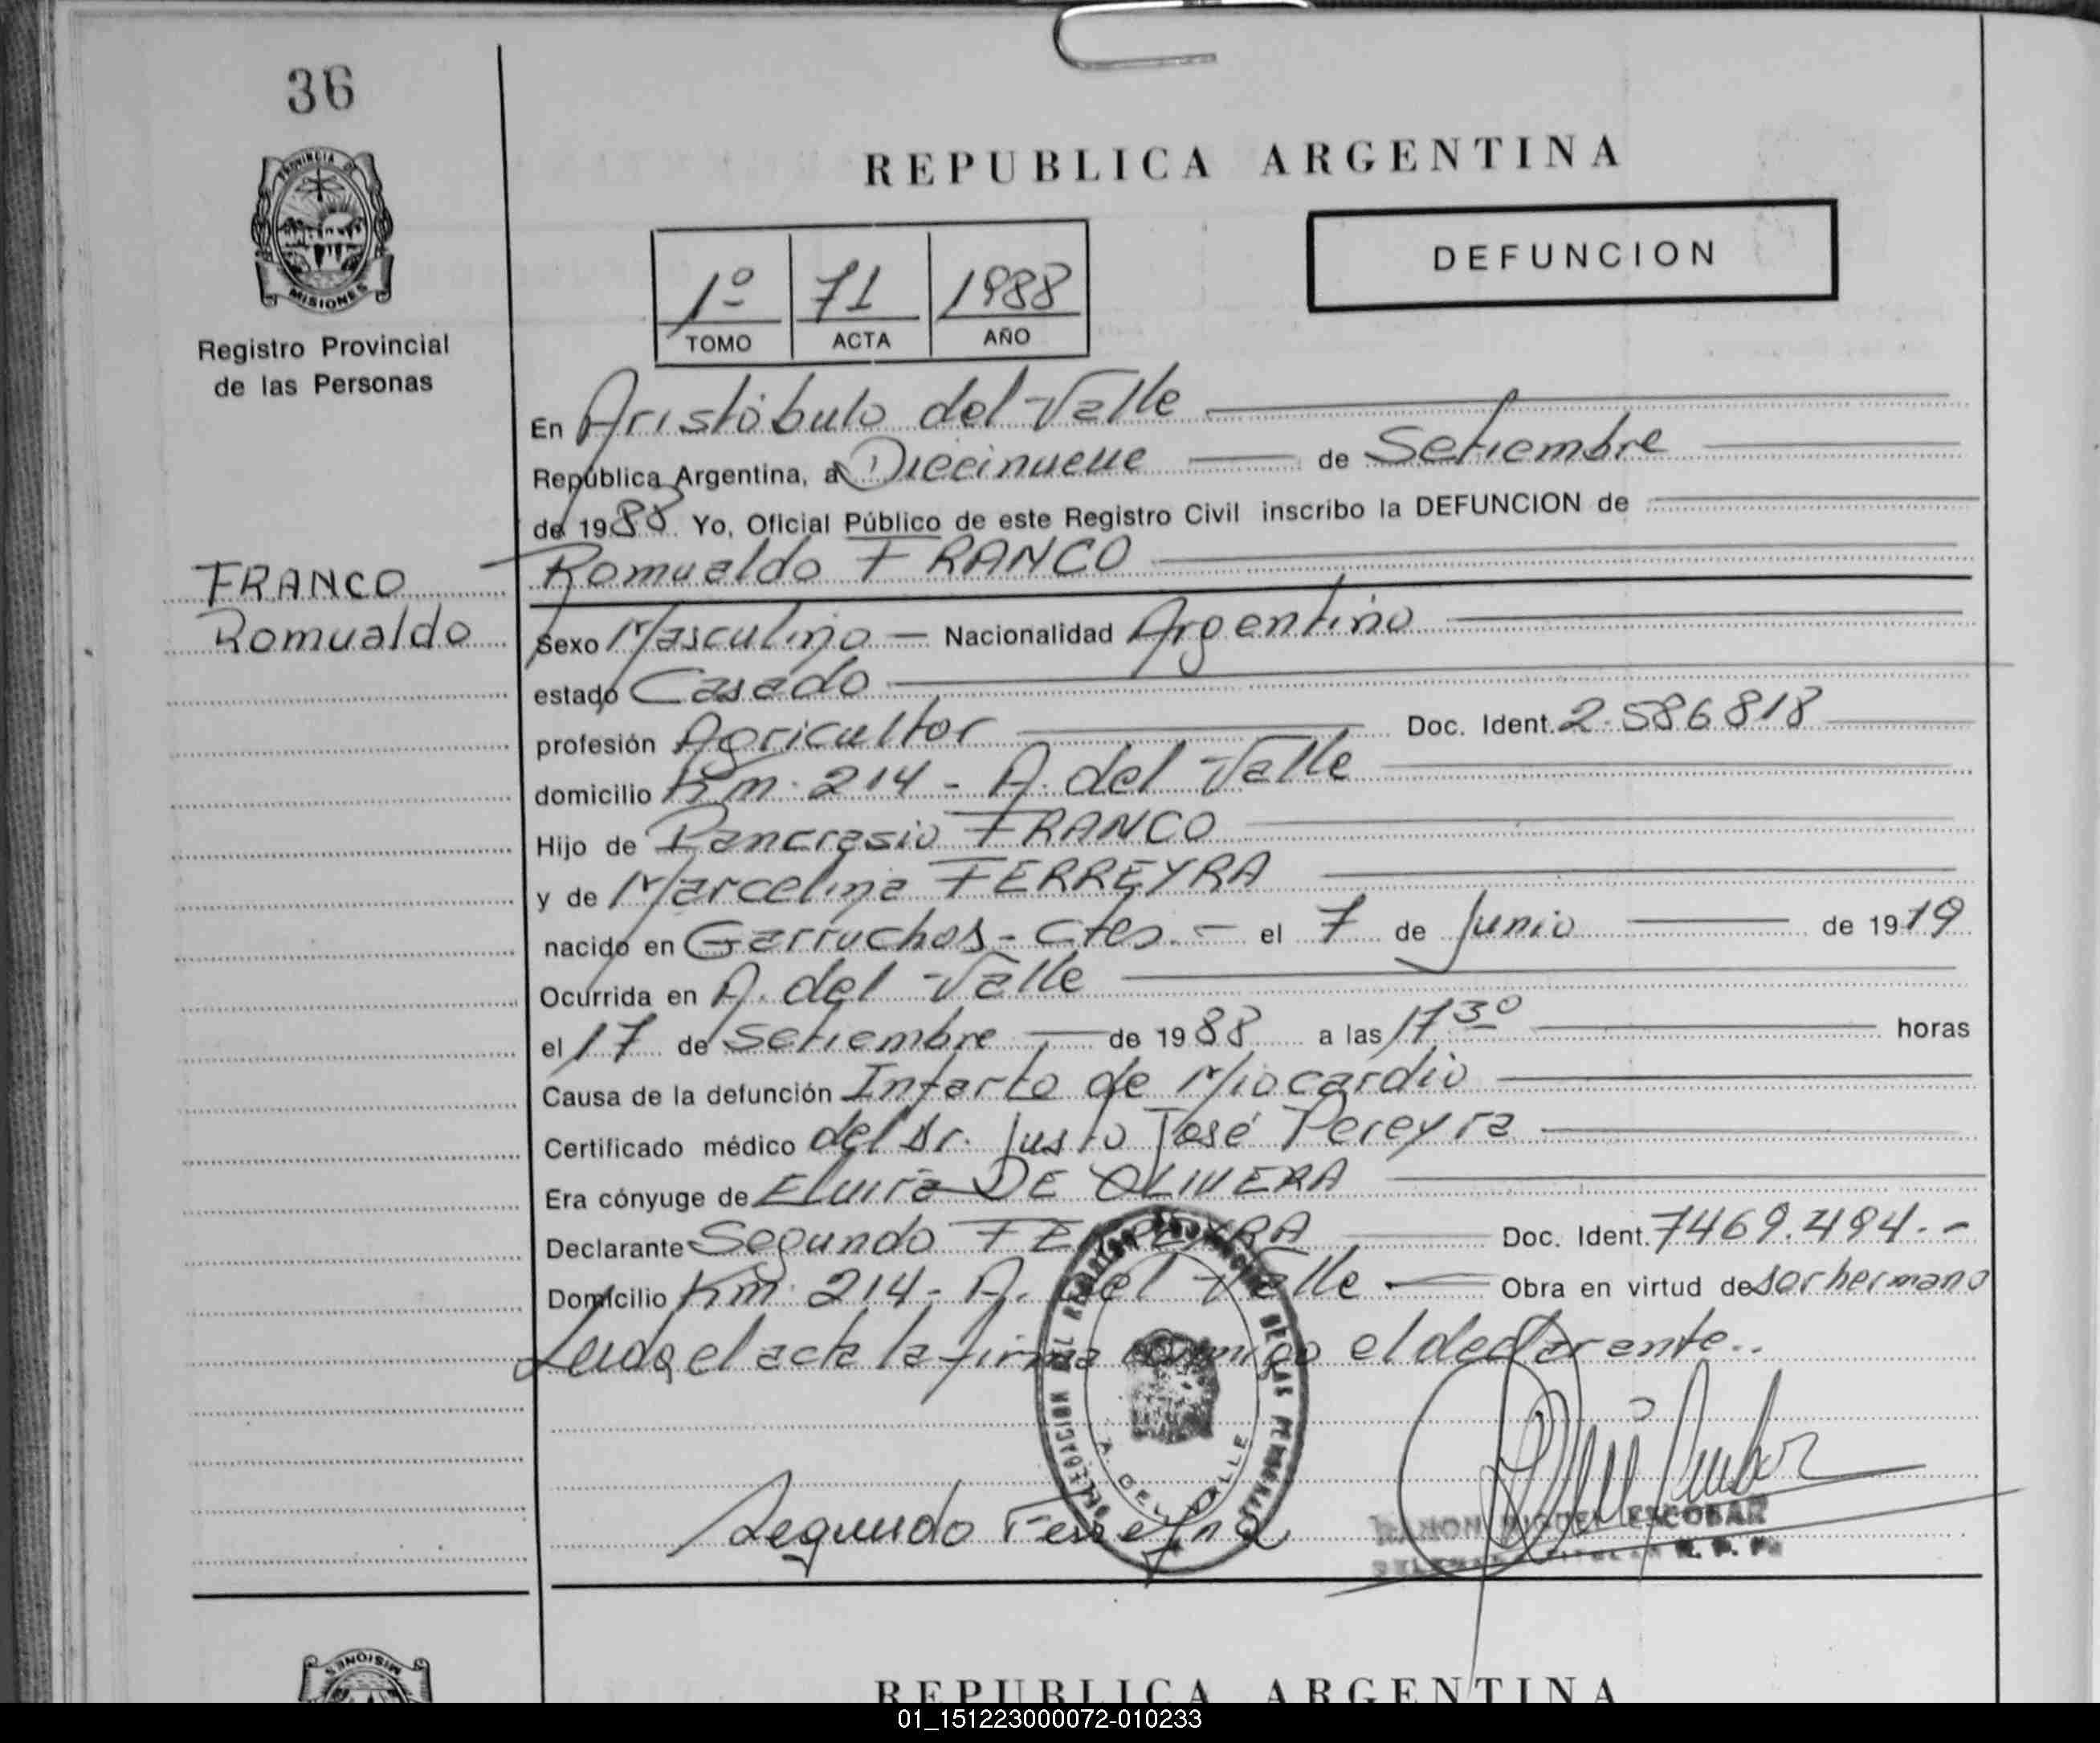 36
PROVINCIA DE
MISIONES
Registro Provincial
de las Personas
REPUBLICA ARGENTINA
DEFUNCION
1º 71 1988
TOMO ACTA AÑO
En Aristóbulo del Valle
República Argentina, a Diecinueve de Setiembre
de 1988 Yo, Oficial Público de este Registro Civil inscribo la DEFUNCION de
FRANCO
Romualdo
Romualdo FRANCO
Sexo Masculino Nacionalidad Argentino
estado Casado
profesión Agricultor Doc. Ident. 2.586818
domicilio Km. 214 - A. del Valle
Hijo de Pancrasio FRANCO
y de Marcelina FERREYRA
nacido en Garruchos - Ctes. - el 7 de Junio de 1919
Ocurrida en A. del Valle
el 17 de Setiembre de 1988 a las 17 30 horas
Causa de la defunción Infarto de Miocardio
Certificado médico del Dr. Justo José Pereyra
Era cónyuge de Elvira DE OLIVERA
Declarante Segundo FERREYRA Doc. Ident. 7469.494.-
Domicilio Km. 214 - A. del Valle Obra en virtud de sor hermano
Leida el acta la firma conmigo el declarante..
A. DEL VALLE
Segundo Ferreyra
RAMON MIGUEL ESCOBAR
R. P. P.
MISIONES
REPUBLICA ARGENTINA
01_151223000072-010233